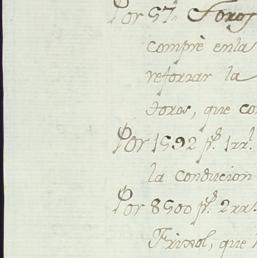 Por 57. Toros
comprè enla
reforzar la
Toros, que co
Por 1592 p.s 1 rr.l
la conducion
Por 8500 p.s 2 rr.
que